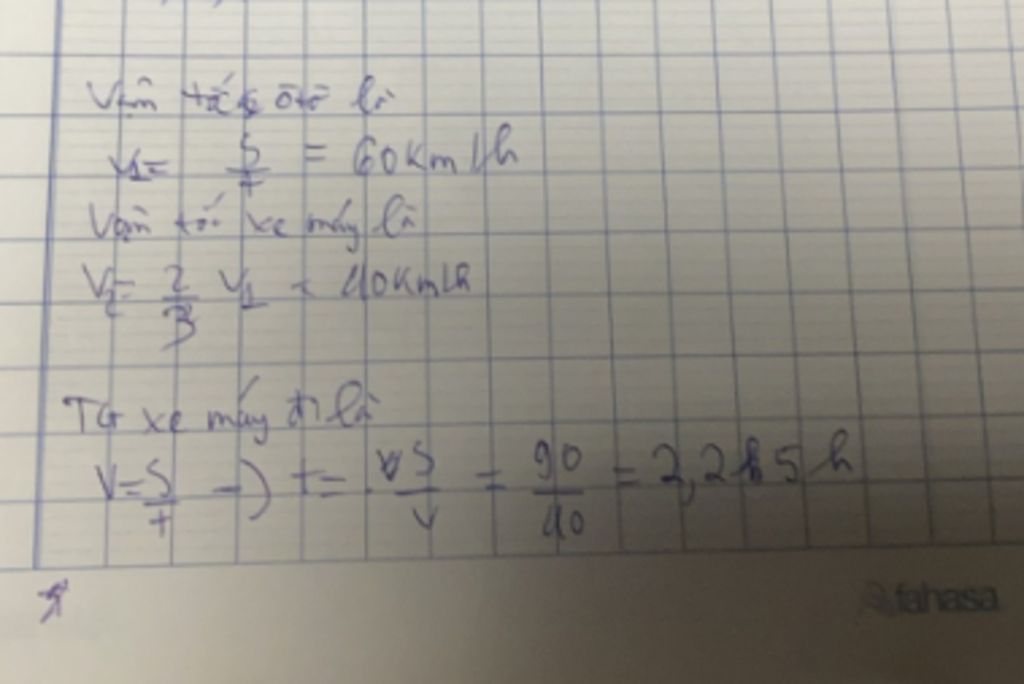 Vận tốc ôtô là
V1 = S/t = 60 km/h
Vận tốc xe máy là
V2 = 2/3 V1 = 40 km/h
TG xe máy đi là
V = S/t -> t = S/v = 90/40 = 2,25 h
fahasa